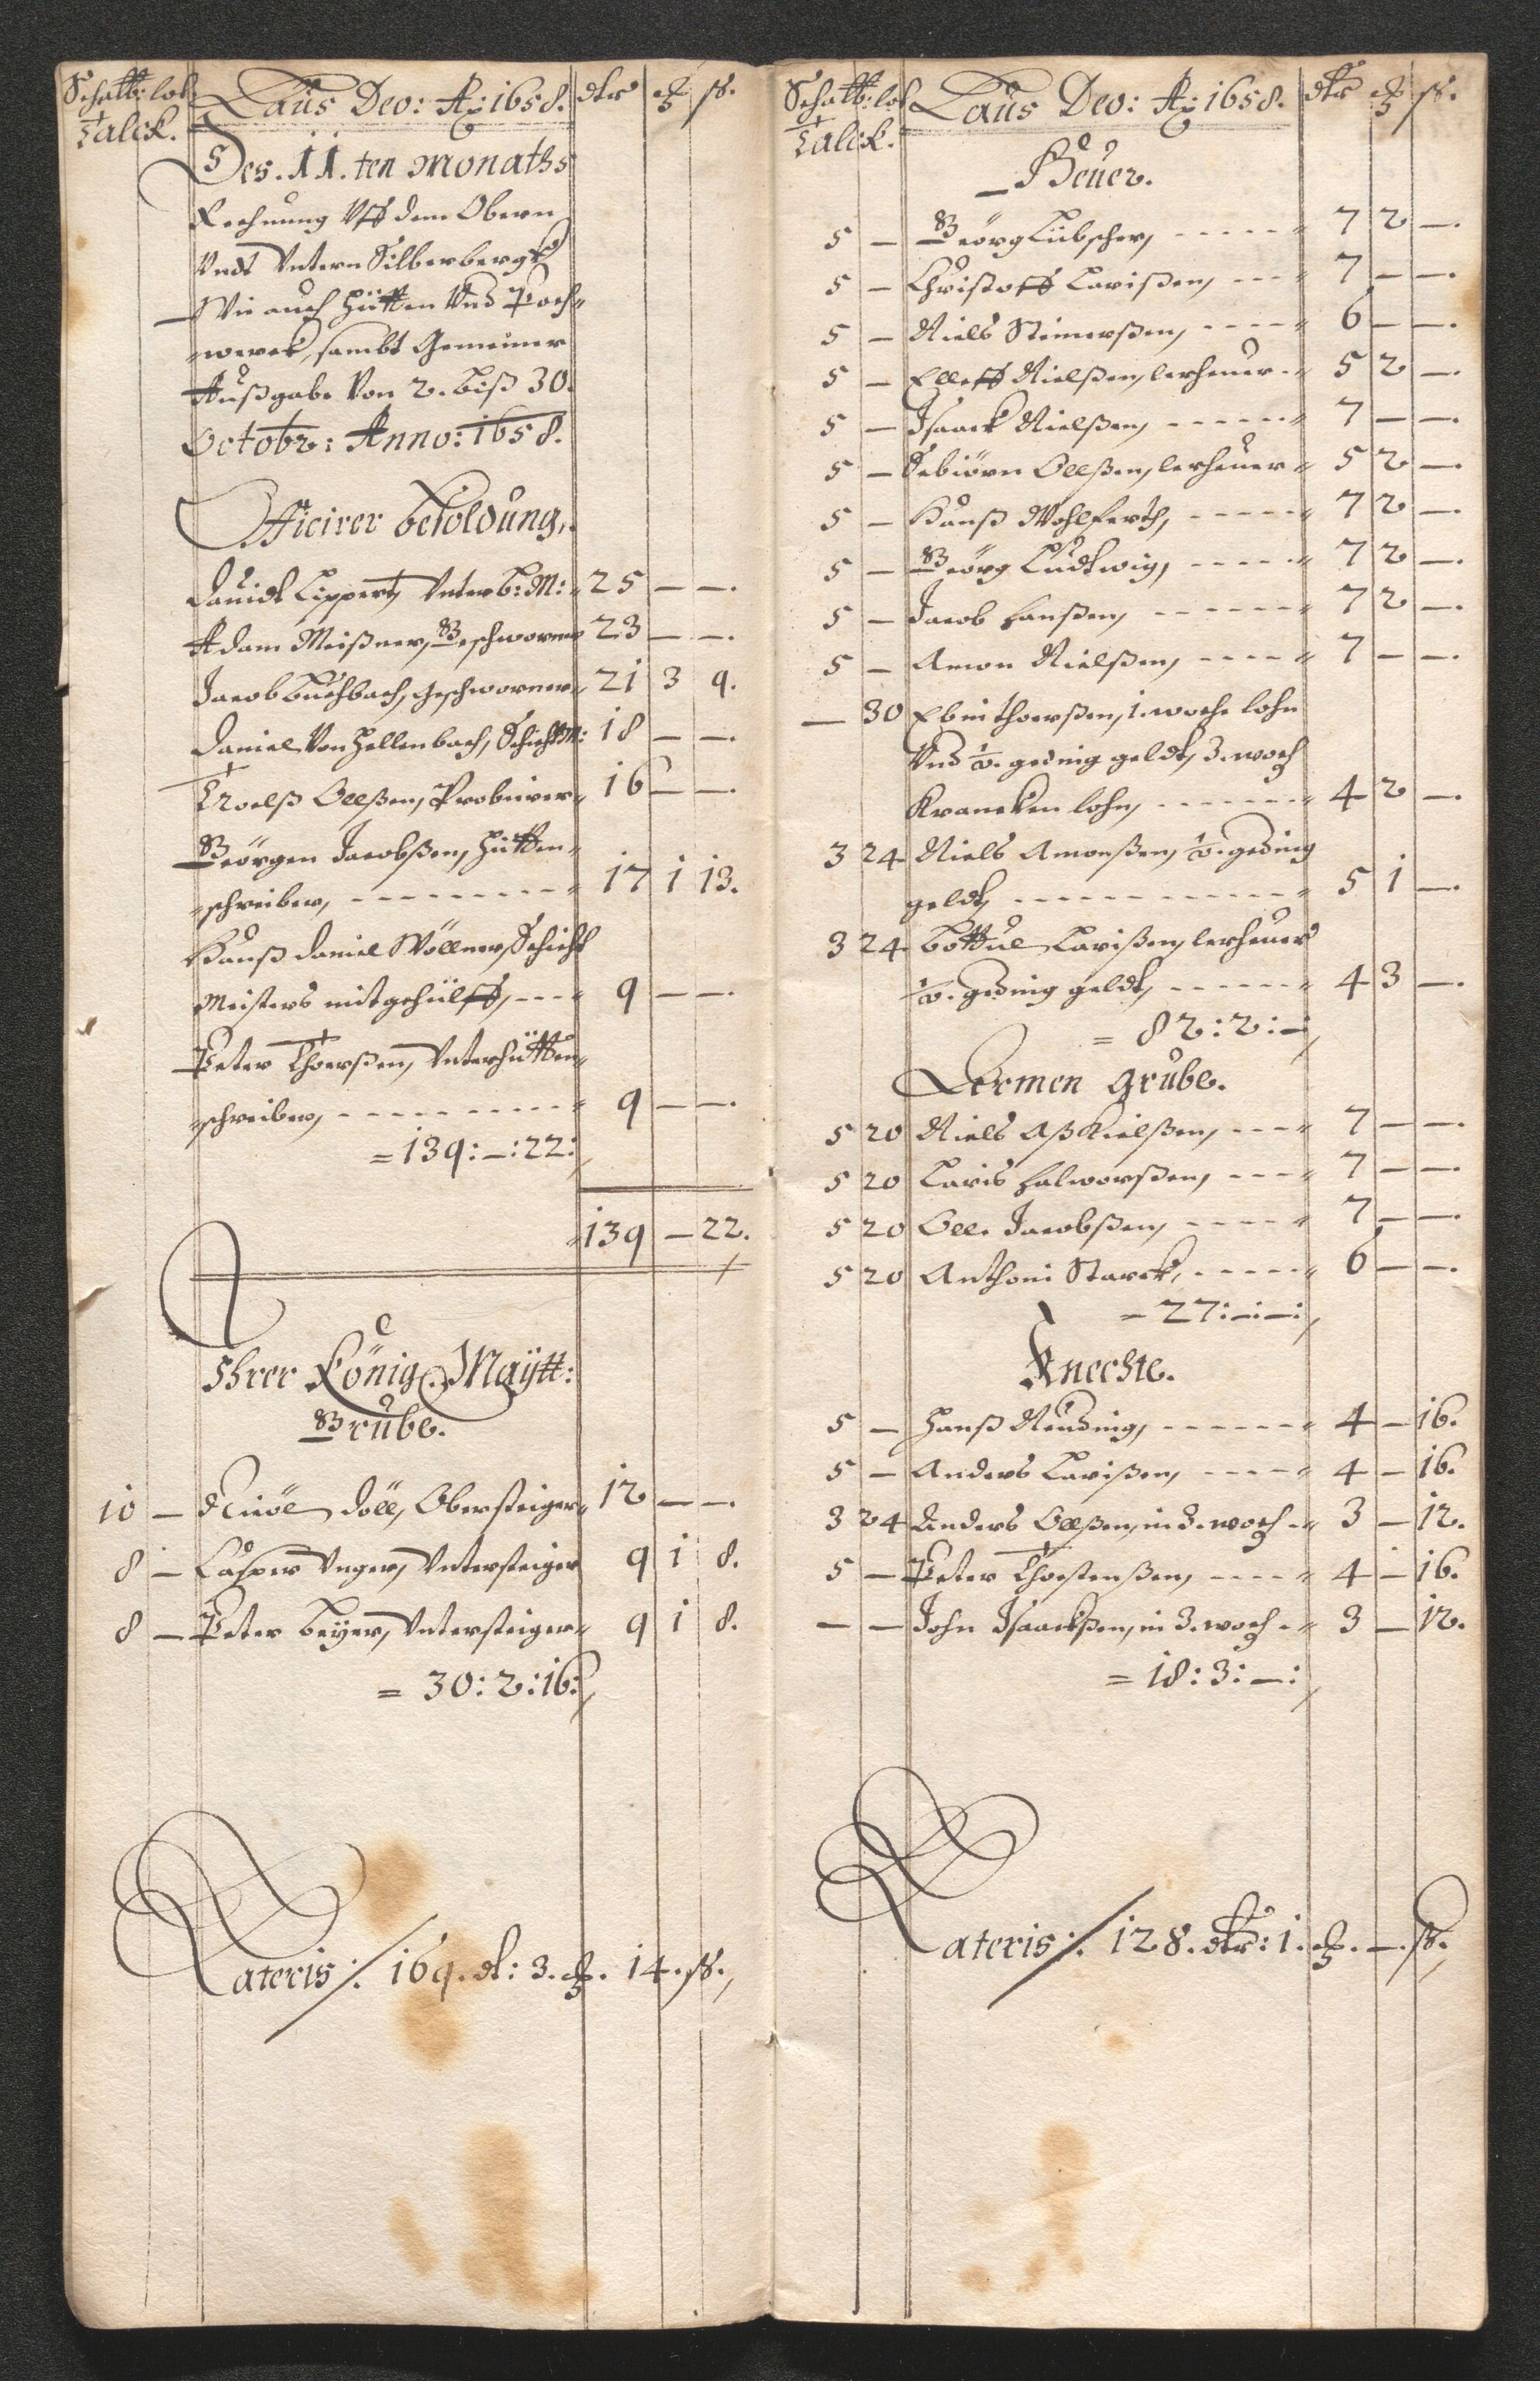 Schatb: lot Laus Deo: Ao: 1658. dlr ß.
Talck.
Des. 11.ten Monaths
Rechnung Vff dem Obern
Vndt Vntern Silberbergk
Wie auch Hütten Vnd Poch-
werck, sambt Gemeiner
Außgabe Von 2. biß 30.
Octobr: Anno: 1658.
Officirer besoldung.
Dauidt Lippert, Vnter b: M: 25 — —.
Adam Meißner, Geschworner 23 — —.
Jacob buchbach, Geschworner 21 3 9.
Daniel Von Hellenbach, Schicht M: 18 — —.
Troelß Ollßen, Probierer 16 — —.
Geörgen Jacobßen, Hütten-
schreiber, 17 1 13.
Hanß Daniel Wöllner, Schicht
Meisters mitgehülff, 9 — —.
Peter Thorßen, Vnterhütten-
schreiber, 9 — —.
= 139: —: 22:
139 — 22.
Ihrer König: Maÿtt:
Grube.
10 — Döll, Obersteiger 12 — —.
8 — Casper Vnger, Vntersteiger 9 1 8.
8 — Peter beÿer, Vntersteiger 9 1 8.
= 30: 2: 16:
Lateris:/. 169. dl: 3. 14. ß.
Schatb: lot Laus Deo: Ao: 1658. dlr ß.
Talck.
Heuer.
5 — Geörg Lübscher, 7 2 —.
5 — Christoff Larißen, 7 — —.
5 — Niels Steinerßen, 6 — —.
5 — Elleff Nielßen, lerheuer 5 2 —.
5 — Isaack Nielßen, 7 — —.
5 — Sebiörn Ollßen, lerheuer 5 2 —.
5 — Hanß Wohlferth, 7 2 —.
5 — Geörg Ludtwig, 7 2 —.
5 — Jacob Hanßen, 7 2 —.
5 — Amon Nielßen, 7 — —.
— 30 Thorßen, 1. woche lohn
Vnd geding geldt, 3. woch
Krancken lohn, 4 2 —.
3 24 Niels Amonßen, geding
geldt, 5 1 —.
3 24. Larißen, lerheuer
geding geldt, 4 3 —.
= 82: 2: —
Armen grube.
5 20 Niels Aßkielßen, 7 — —.
5 20 Laris Halworßen, 7 — —.
5 20 Olle Jacobßen, 7 — —.
5 20 Anthoni Starck, 6 — —.
= 27: —: —:
Knechte.
5 — Hanß Reuding, 4 — 16.
5 — Anders Larißen, 4 — 16.
3 24 Anders Ollßen, in 3. woch 3 — 12.
5 — Peter Thorstenßen, 4 — 16.
— — John Isaackßen, in 3. woch 3 — 12.
= 18: 3: —:
Lateris:/. 128. dlr: 1. —. ß.